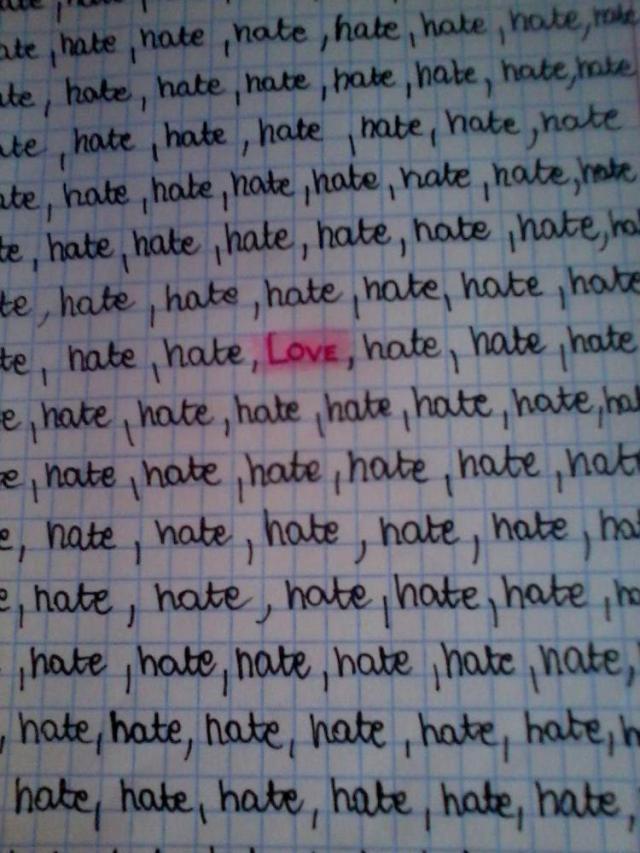 hate, hate, hate, hate, hate, hate,
hate, hate, hate, hate, hate, hate, hate
, hate, hate, hate, hate, hate, hate
hate, hate, hate, hate, hate, hate, hate
, hate, hate, hate, hate, hate, hate,
, hate, hate, hate, hate, hate, hate
, hate, hate, LOVE, hate, hate, hate
, hate, hate, hate, hate, hate, hate,
, hate, hate, hate, hate, hate,
, hate, hate, hate, hate, hate,
, hate, hate, hate, hate, hate,
, hate, hate, hate, hate, hate, hate,
, hate, hate, hate, hate, hate, hate,
hate, hate, hate, hate, hate, hate,